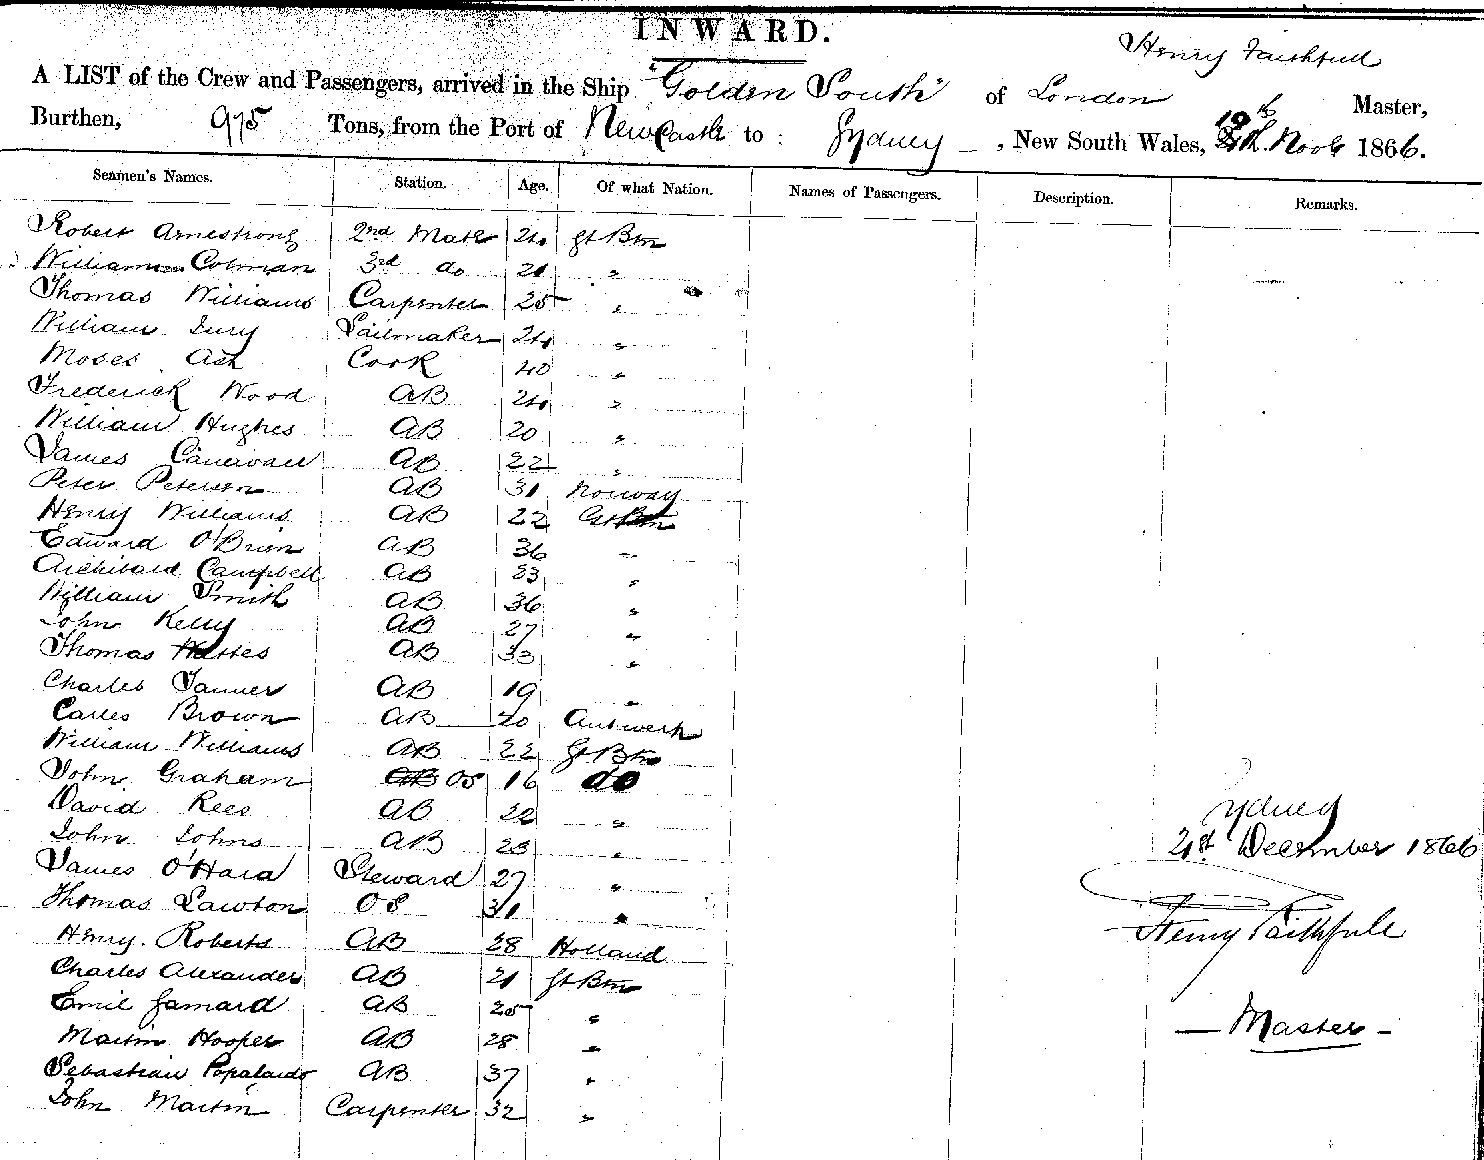 INWARD.
Henry Faithfull
A LIST of the Crew and Passengers, arrived in the Ship "Golden South" of London Master,
Burthen, 975 Tons, from the Port of Newcastle to : Sydney , New South Wales, 19th Novb 1866.
Seamen's Names. Station. Age. Of what Nation. Names of Passengers. Description. Remarks.
Robert Armstrong 2nd Mate 24 Gt Btn
William Colman 3rd do 21 "
Thomas Williams Carpenter 25 "
William Jury Sailmaker 24 "
Moses Ash Cook 40 "
Frederick Wood AB 24 "
William Hughes AB 20 "
James AB 22 "
Peter Peterson AB 31 Norway
Henry Williams AB 22 Gt Btn
Edward O'Brien AB 36 "
Archibald Campbell AB 23 "
William Smith AB 36 "
John Kelly AB 27 "
Thomas AB 33 "
Charles Tanner AB 19 "
Carles Brown AB 20 Antwerp
William Williams AB 22 Gt Btn
John Graham AB OS 16 do
David Rees AB 22 "
John Johns AB 23 "
James O'Hara Steward 27 "
Thomas Lawton OS 31 "
Henry Roberts AB 28 Holland
Charles Alexander AB 21 Gt Btn
Emil Jamard AB 25 "
Martin Hooper AB 28 "
Sebastian Popalardo AB 37 "
John Martin Carpenter 32 "
Sydney
21st December 1866
Henry Faithfull
- Master -